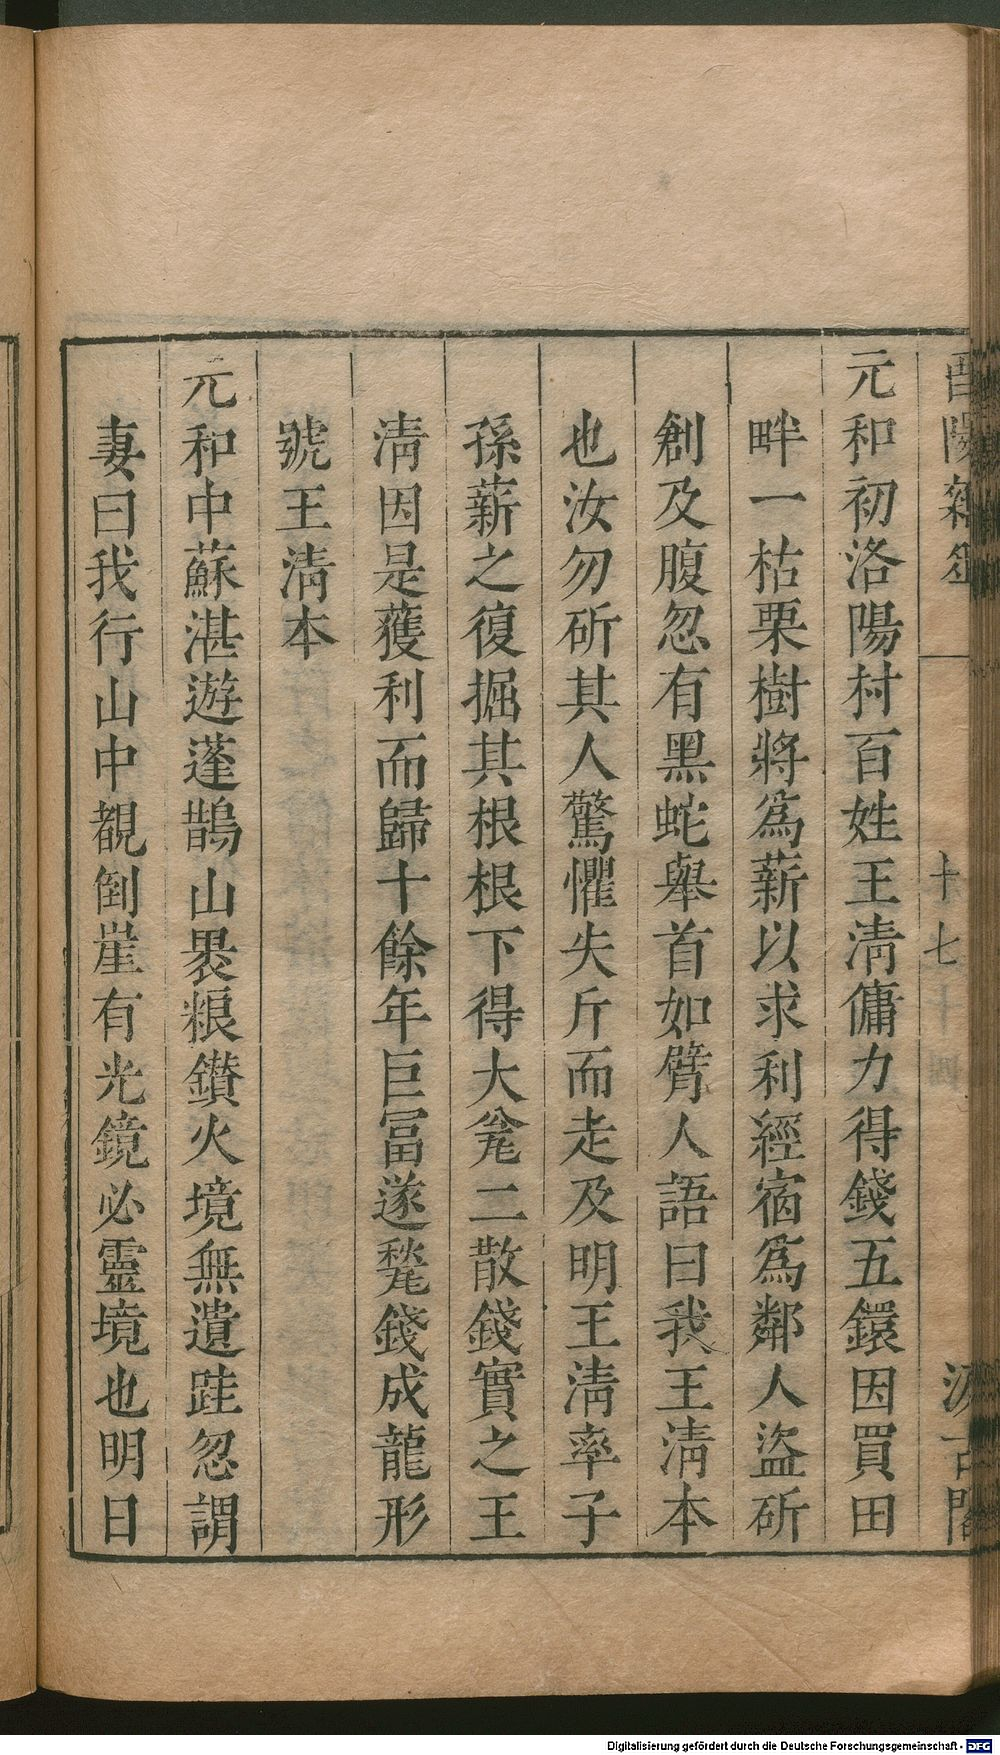 酉陽雜俎 十七 汲古閣
元和初洛陽村百姓王淸傭力得錢五鐶因買田
畔一枯栗樹將爲薪以求利經宿爲鄰人盜斫
創及腹忽有黑蛇舉首如臂人語曰我王淸本
也汝勿斫其人驚懼失斤而走及明王淸率子
孫薪之復掘其根根下得大瓮二散錢實之王
淸因是獲利而歸十餘年巨冨遂甃錢成龍形
號王淸本
元和中蘇湛遊蓬鵲山褁粮鑚火境無遺跬忽謂
妻曰我行山中覩倒崖有光鏡必靈境也明日
Digitalisierung gefördert durch die Deutsche Forschungsgemeinschaft - DFG